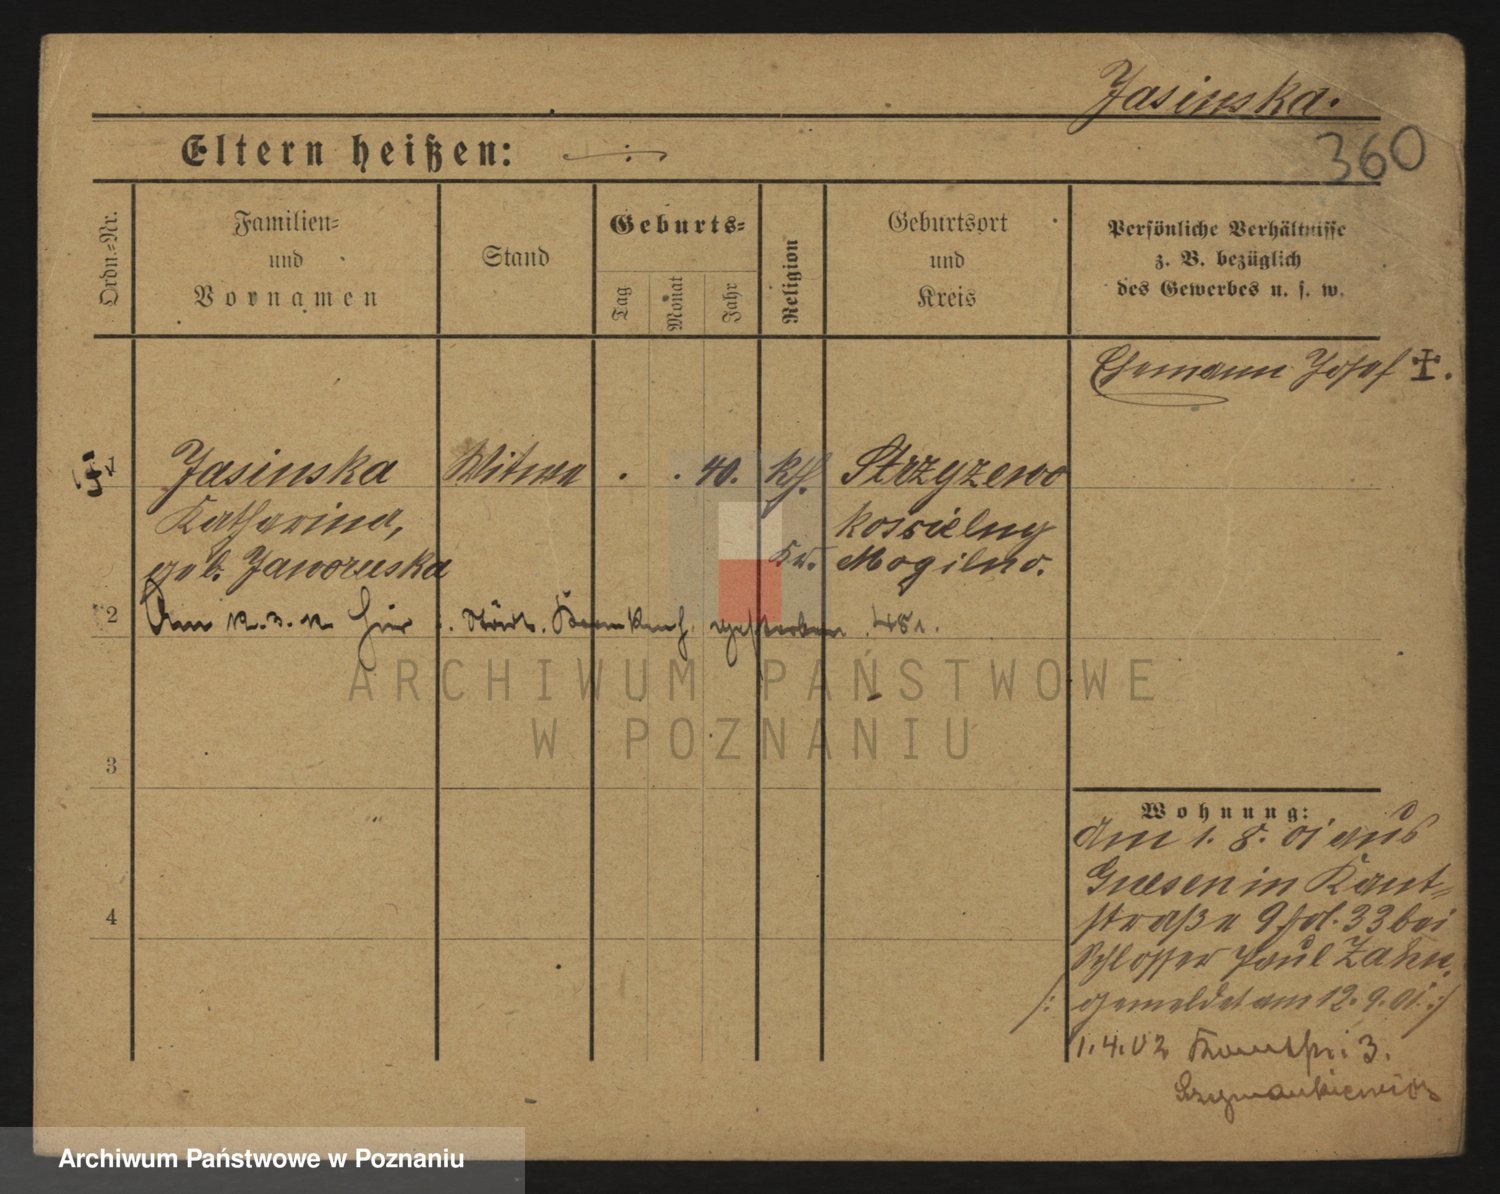 Jasinska.
360
Eltern heißen:
Ordn.-Nr.
Familien-
und
Vornamen
Stand
Geburts-
Tag
Monat
Jahr
Religion
Geburtsort
und
Kreis
Persönliche Verhältnisse
z. B. bezüglich
des Gewerbes u. s. w.
Ehemann Josef
Jasinska Witwe . . 40. kth. Strzyzewo
Katharina, koscielny
geb. Jaworuska Kr. Mogilno.
2
Am hier . Städt. Krankenh. gestorben
3
4
Wohnung:
Am 1. 8. 01 aus
Gnesen in Kant-
straße 9 fol. 33 bei
Schlosser Paul Zahn.
/: gemeldet am 12. 9. 01. :/
1.4.02 Kantstr. 3.
Szymankiewicz
ARCHIWUM PAŃSTWOWE
W POZNANIU
Archiwum Państwowe w Poznaniu